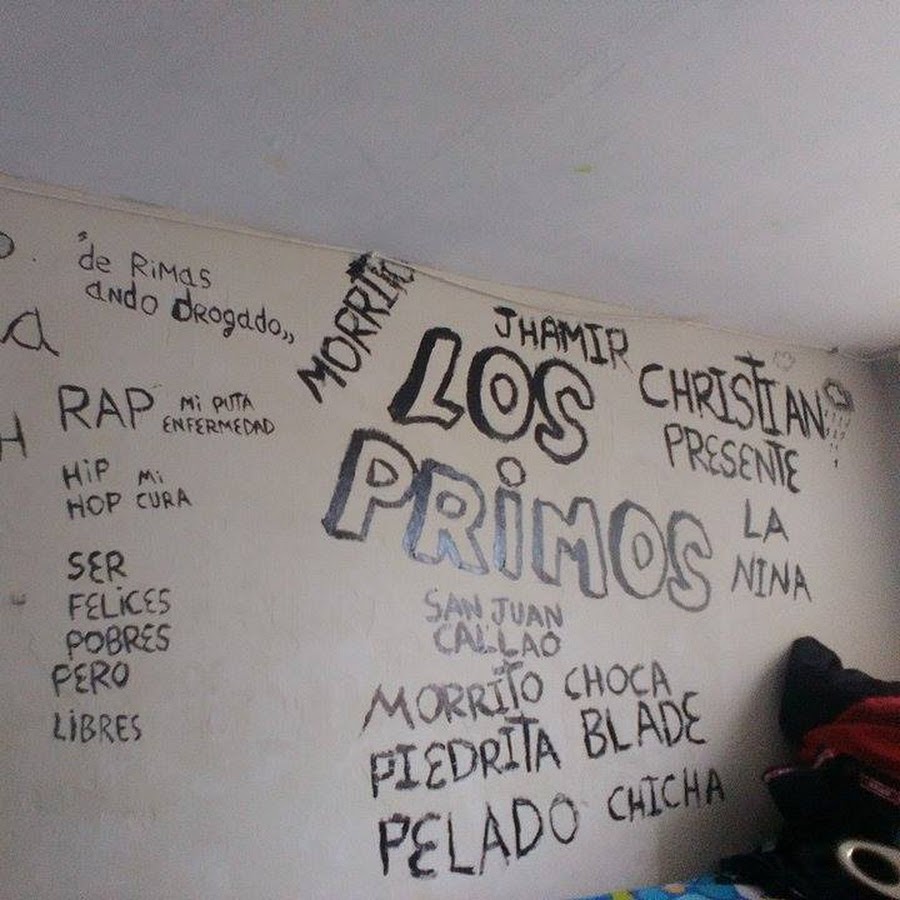 "de Rimas
ando Drogado,,
a
RAP Mi PUTA
ENFERMEDAD
H
HiP Mi
HOP CURA
SER
FELiCES
POBRES
PERO
LiBRES
MORRITO
JHAMIR
LOS
PRiMOS
CHRISTIAN
PRESENTE
LA
NINA
SAN JUAN
CALLAO
MORRITO CHOCA
PIEDRITA BLADE
PELADO CHICHA